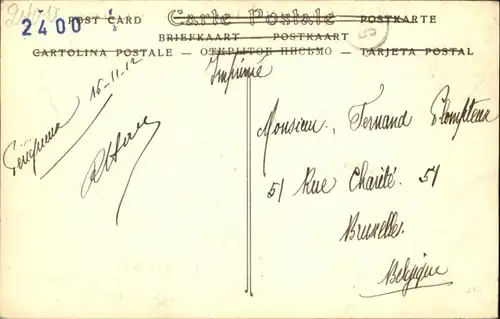 2400
POST CARD Carte Postale POSTKARTE
BRIEFKAART POSTKAART
CARTOLINA POSTALE — ОТКРЫТОЕ ПИСЬМО — TARJETA POSTAL
Imprimé
15-11-12
Monsieur, Fernand
51 Rue Charité. 51
Bruxelles.
Belgique